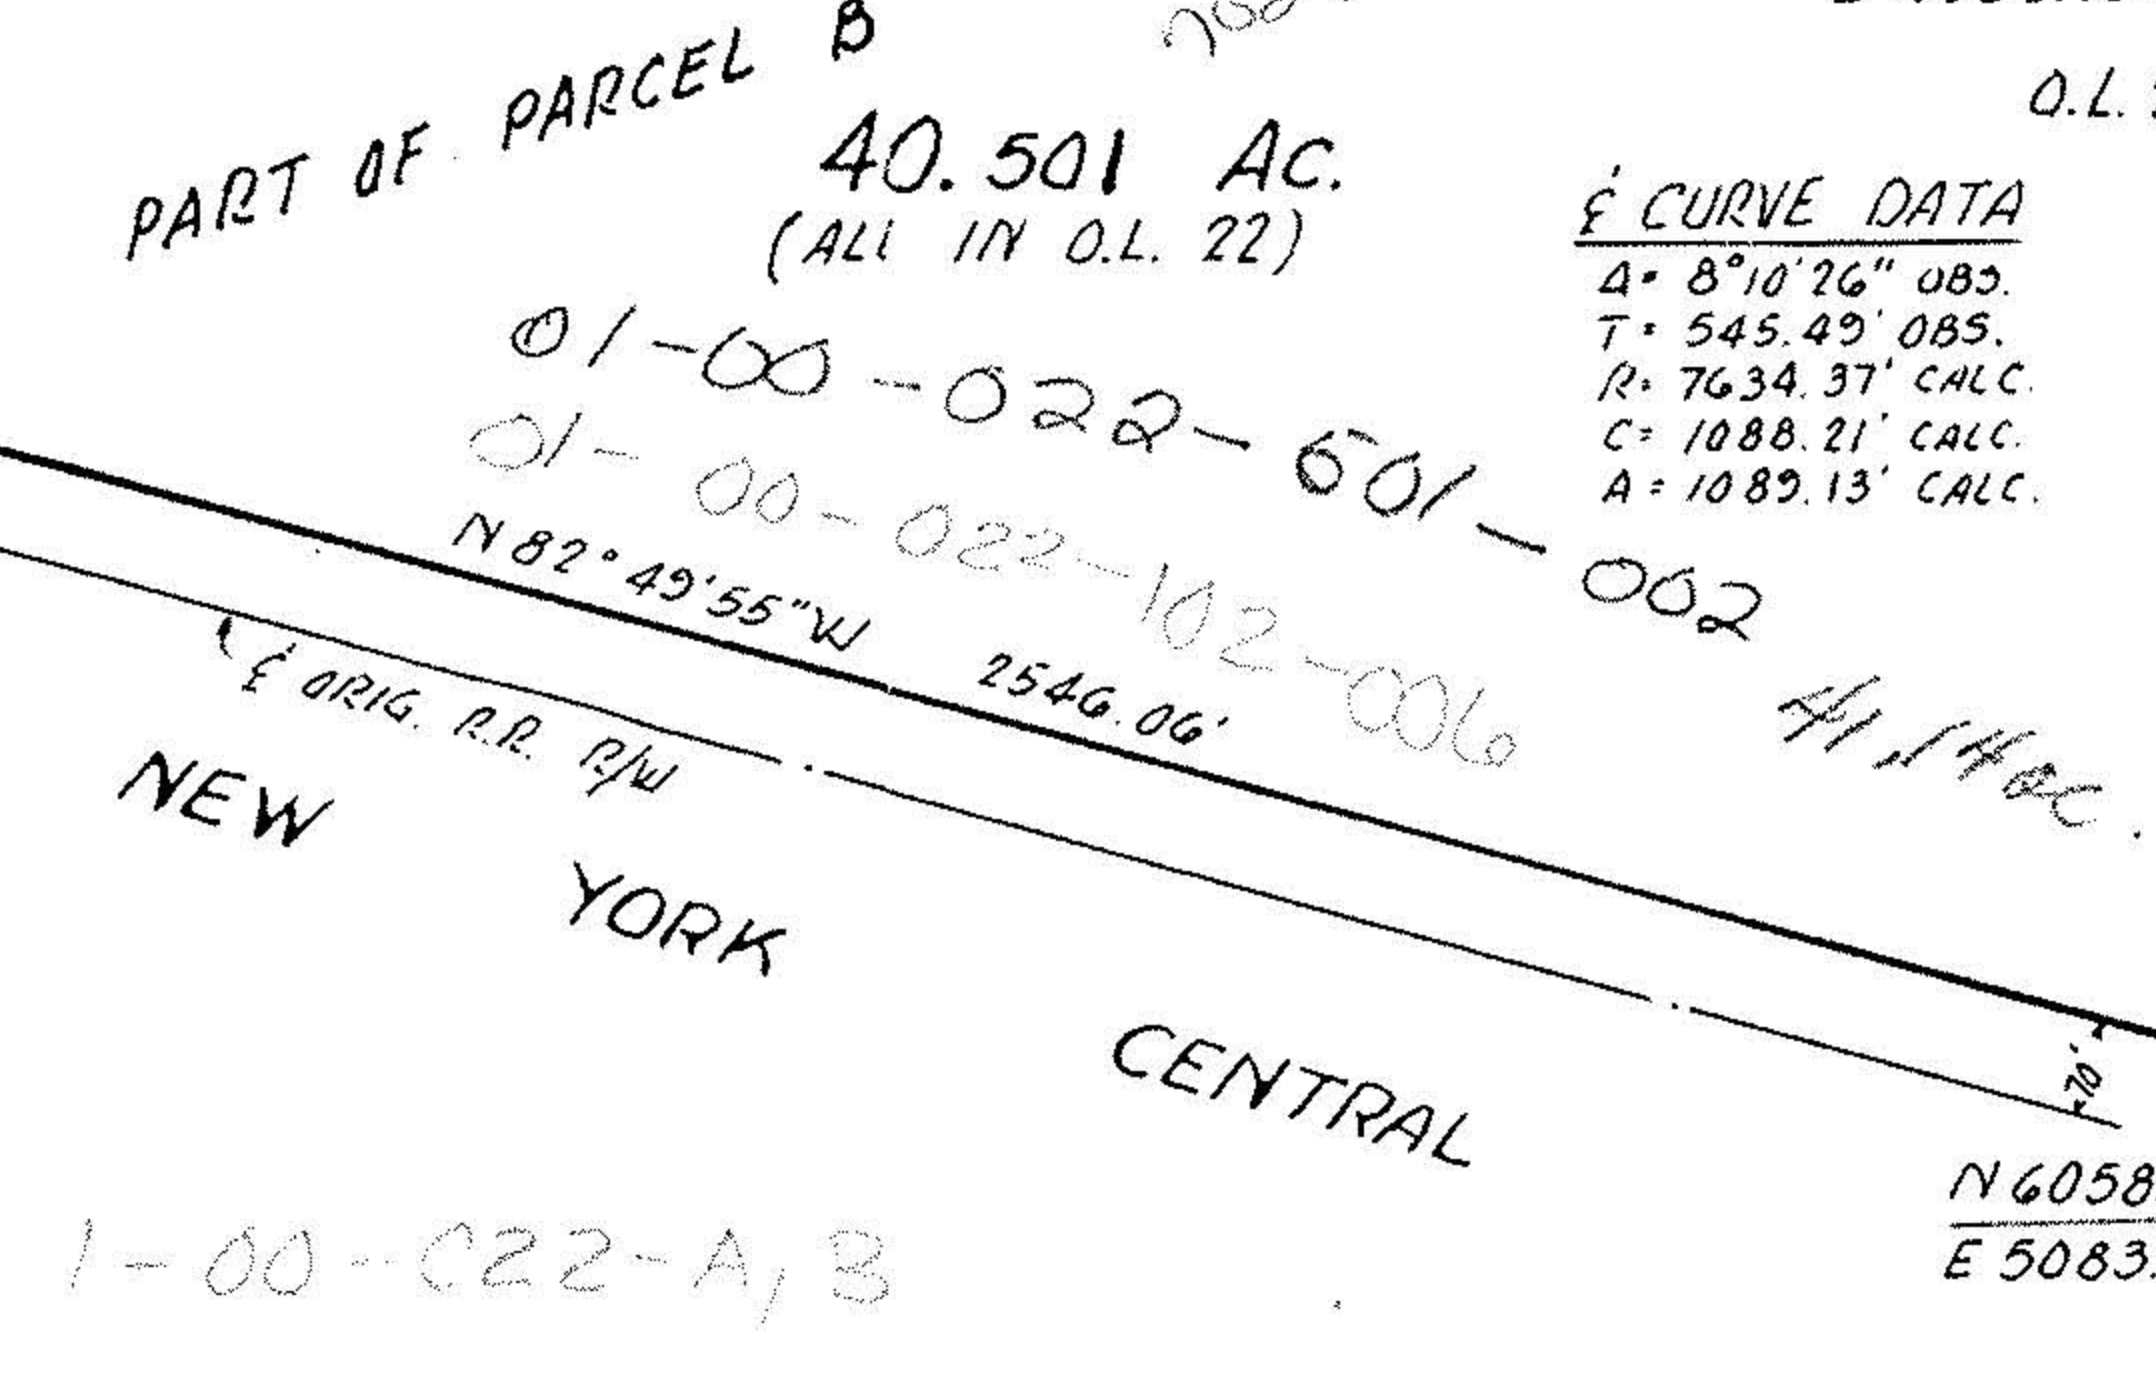 PART OF PARCEL B
40.501 AC.
(ALL IN O.L. 22)
O.L.
℄ CURVE DATA
Δ= 8°10'26" OBS.
T= 545.49' OBS.
R= 7634.37' CALC.
C= 1088.21' CALC.
A= 1089.13' CALC.
01-00-022-601-002
01-00-022-102-006
41.14 ac.
N 82°49'55" W 2546.06'
℄ ORIG. R.R. R/W
NEW YORK CENTRAL
70'
N 6058
E 5083.
1-00-C22-A,B